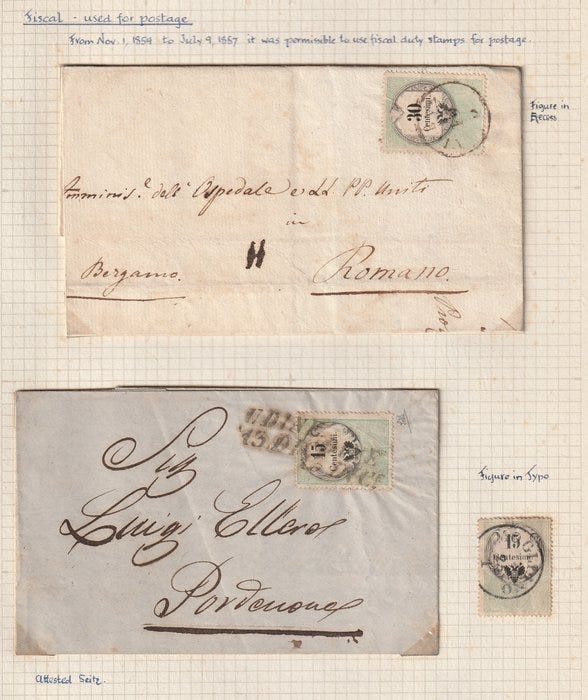 Fiscal - used for postage
From Nov. 1, 1854 to July 9, 1857 it was permissible to use fiscal duty stamps for postage.
30
Centesimi
Figure in
Recess
dell' Ospedale e LL. PP. Uniti
in
Bergamo.
Romano.
UDINE
13.
15
Centesimi.
Sig
Luigi Ellero
Pordenone
Figure in Typo
15
Centesimi
Attested Seitz.